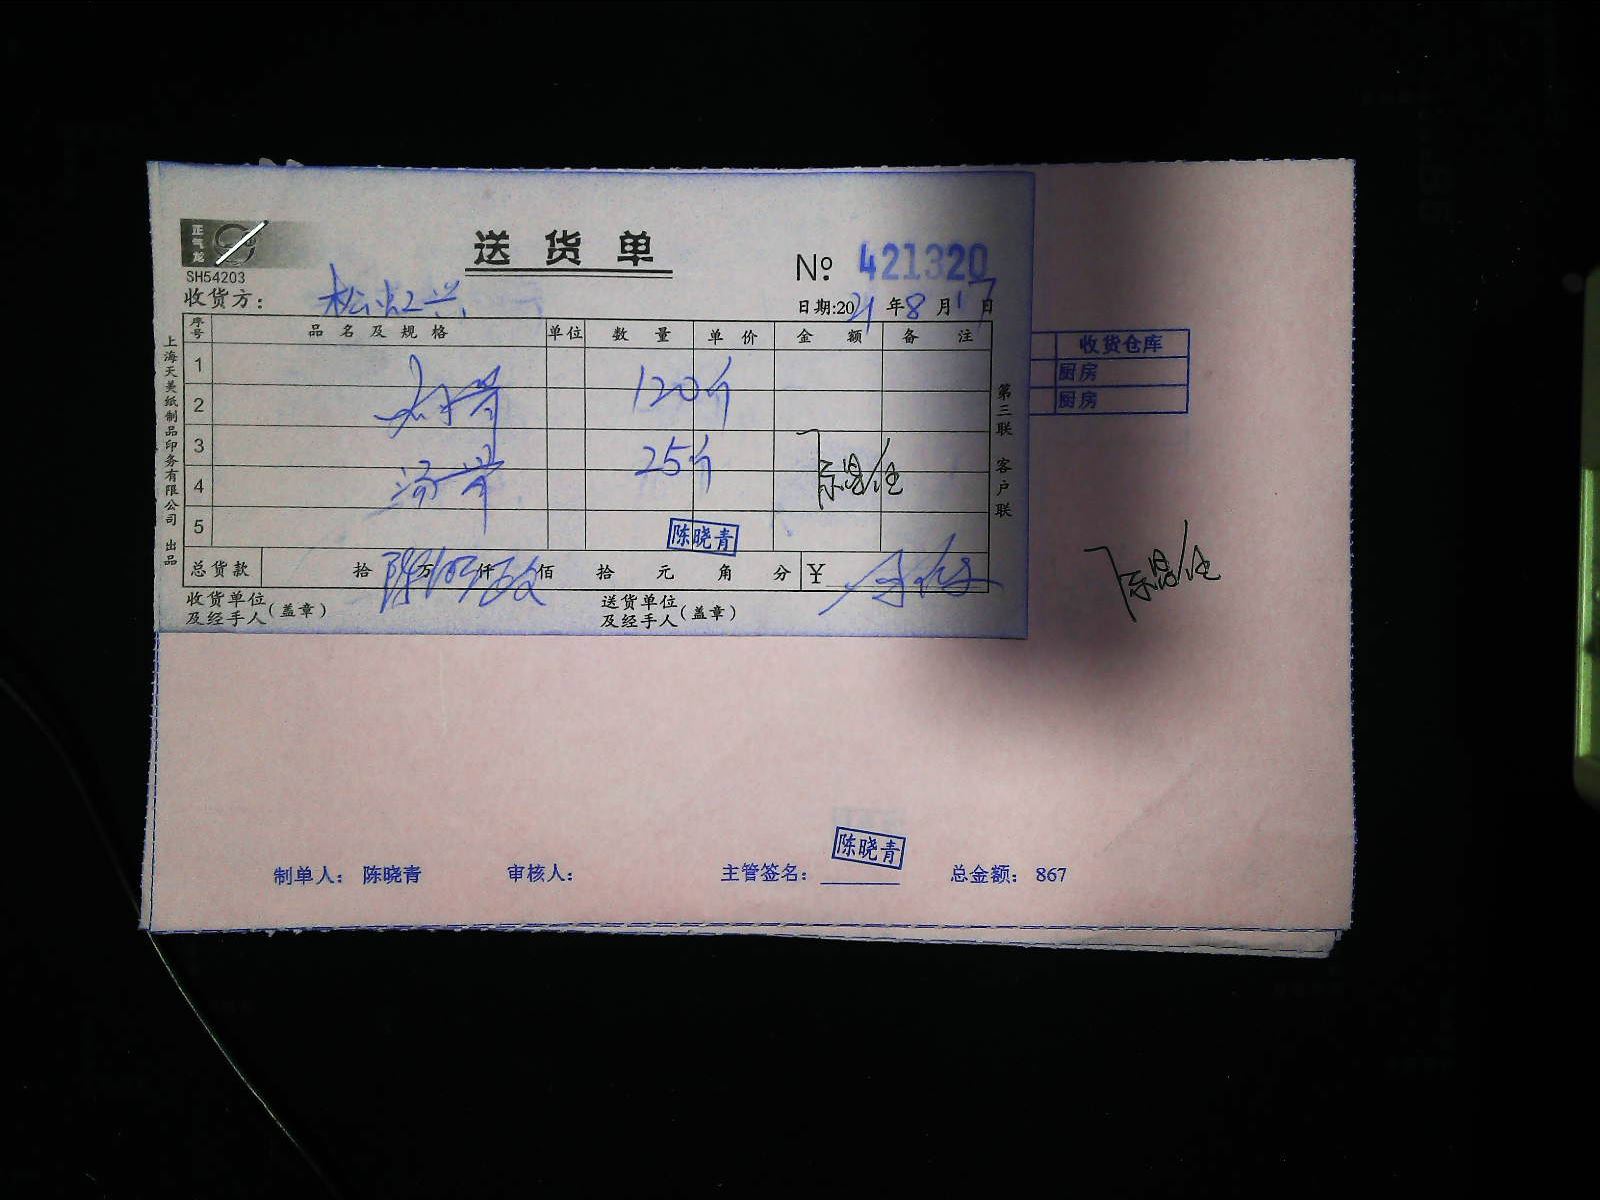 正气龙
SH54203
送货单
№ 421320
收货方：
日期:2021年8月17日
序号 品名及规格 单位 数量 单价 金额 备注
1
2 120斤
3 25斤
4
5
陈晓青
总货款 拾 万 仟 佰 拾 元 角 分 ¥
收货单位及经手人（盖章）
送货单位及经手人（盖章）
上海天美纸制品印务有限公司 出品
第三联 客户联
收货仓库
厨房
厨房
陈晓青
制单人： 陈晓青 审核人： 主管签名： 总金额： 867